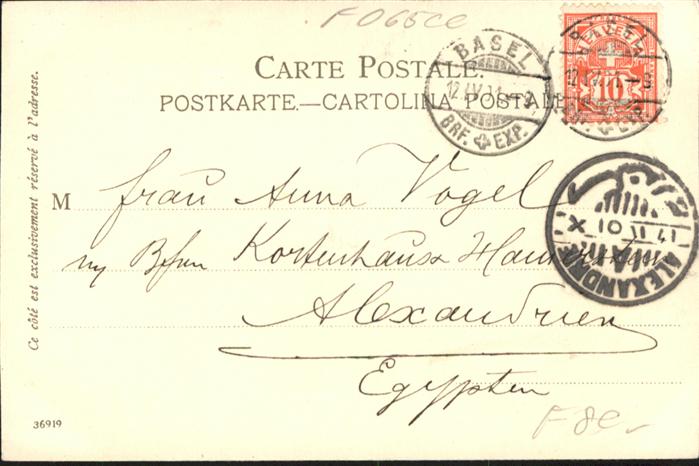 F 065ce
CARTE POSTALE.
POSTKARTE.—CARTOLINA POSTALE
BASEL
BRF. EXP.
HELVETIA
10
Ce côté est exclusivement réservé à l'adresse.
M
Frau Anna Vogel
Alexandrien
Egypten
ALEXANDRIE
36919